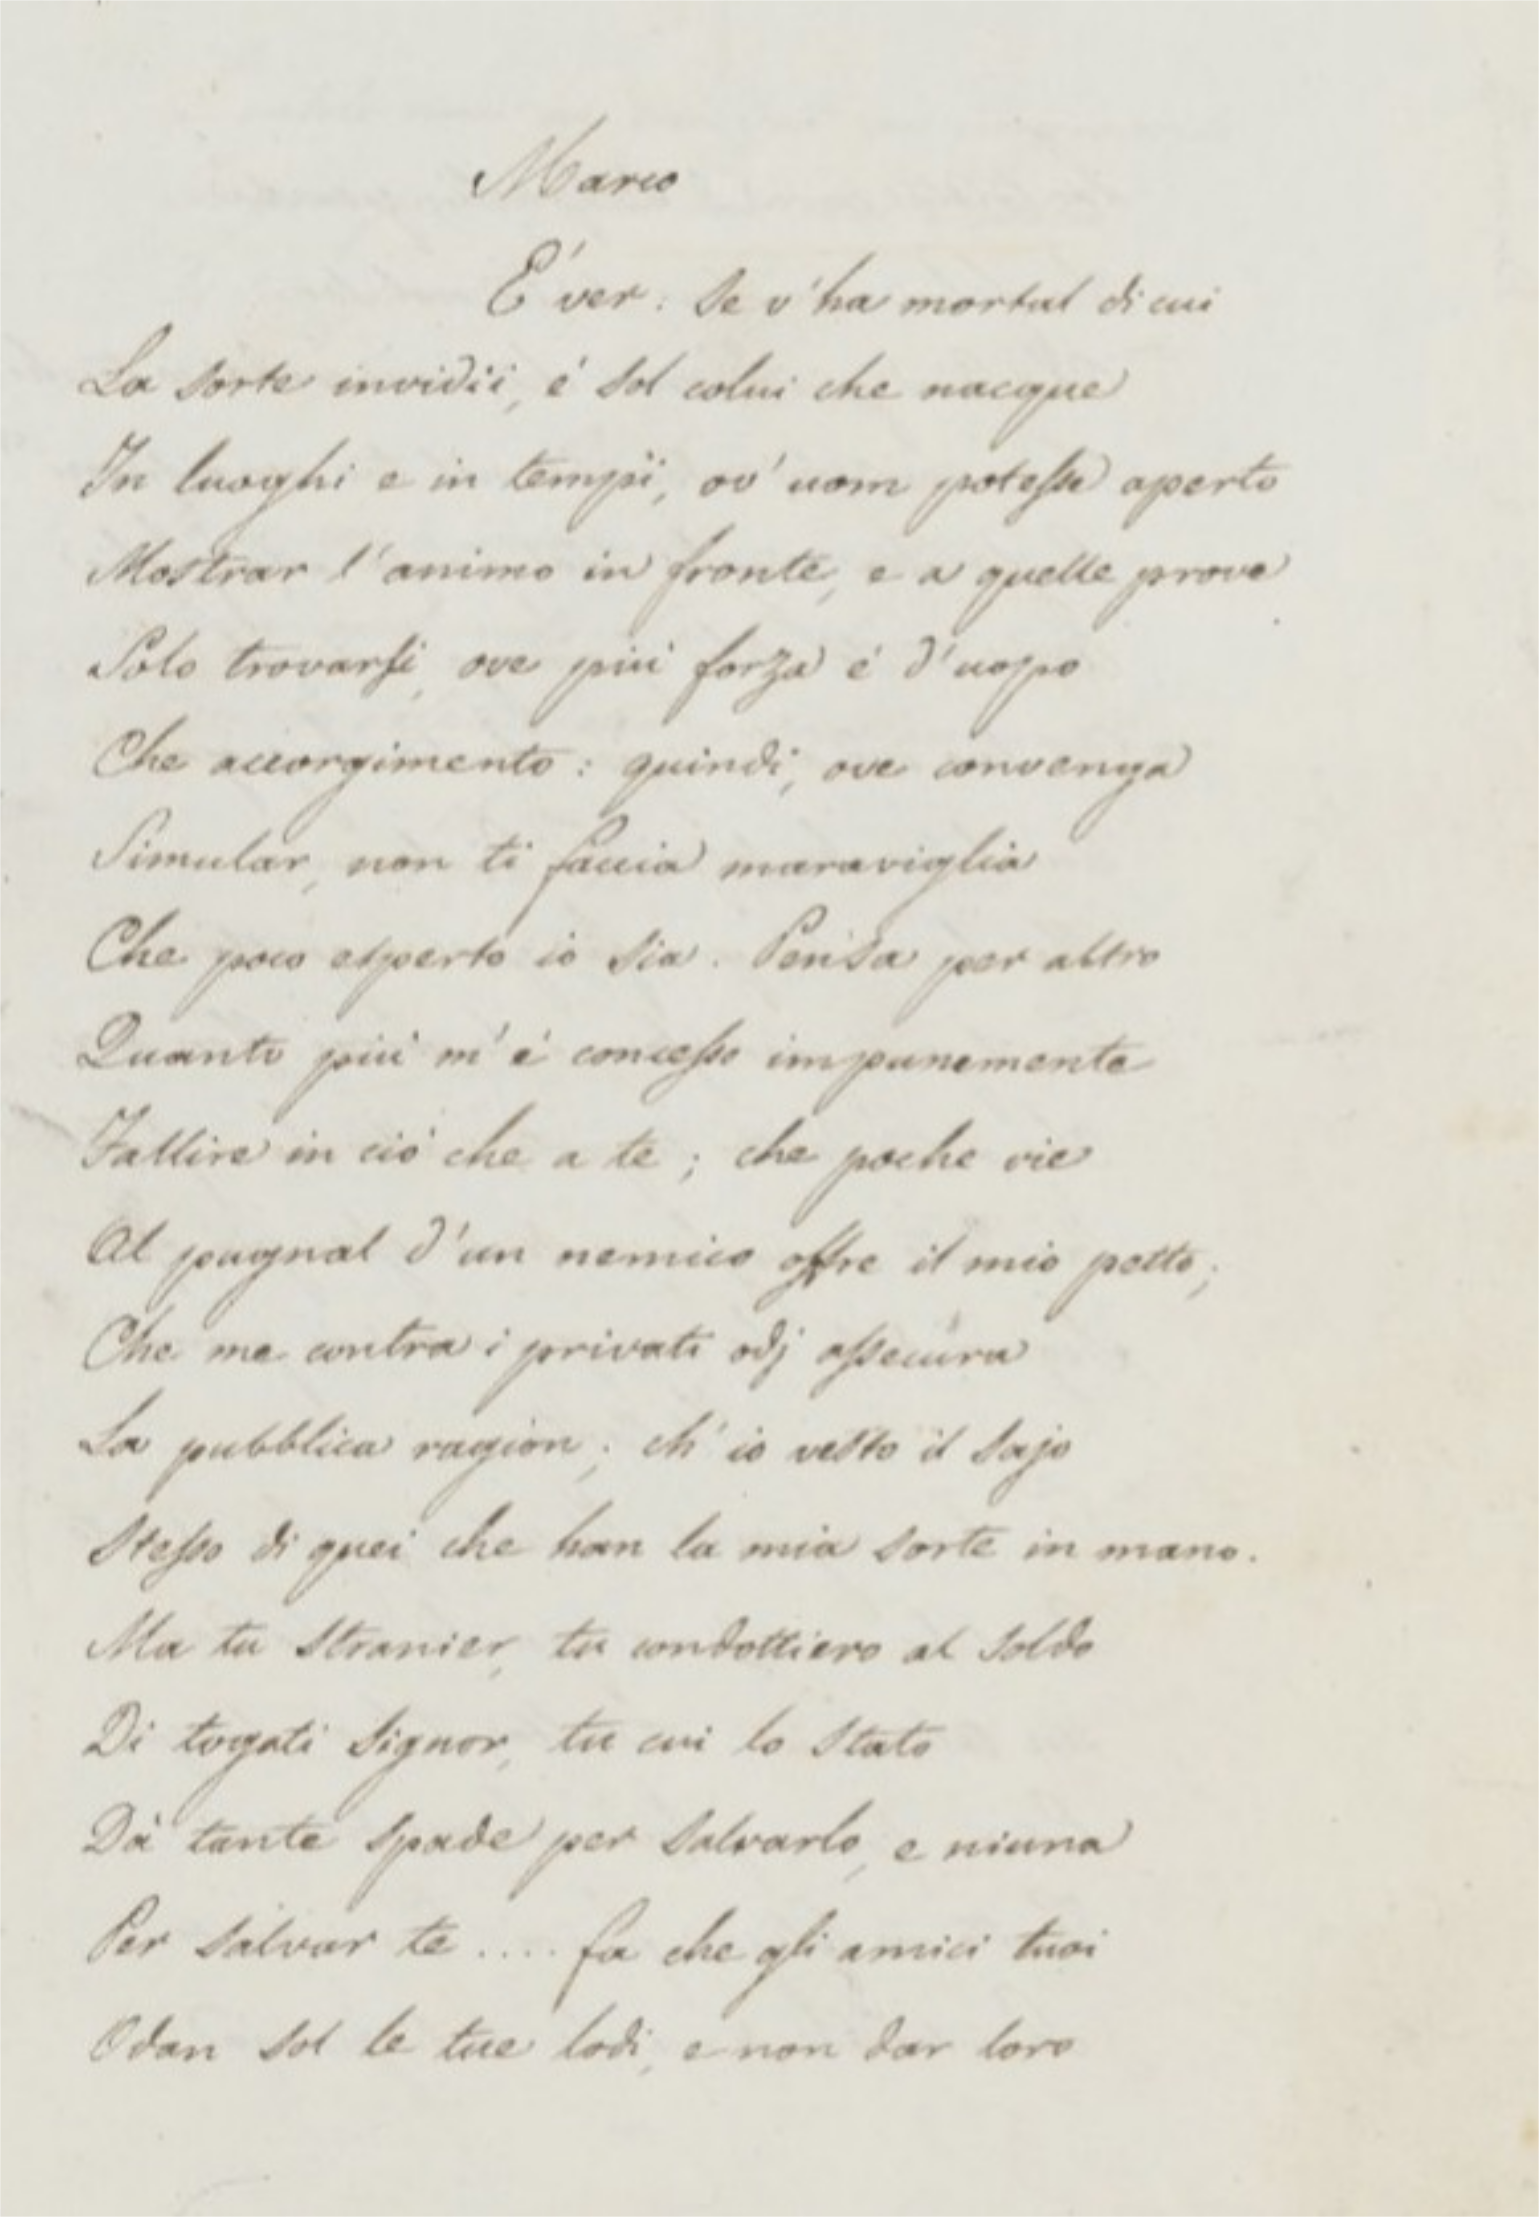 Marco
É ver: se v'ha mortal di cui
La sorte invidii, é sol colui che nacque
In luoghi e in tempii, ov'uom potesse aperto
Mostrar l'animo in fronte, e a quelle prove
Solo trovarsi, ove piú forza é d'uopo
Che accorgimento: quindi, ove convenga
Simular, non ti faccia maraviglia
Che poco esperto io sia. Pensa per altro
Quanto piú m'é concesso impunemente
Fallire in ció che a te; che poche vie
Al pugnal d'un nemico offre il mio petto;
Che me contra i privati odj assecura
La pubblica ragion; ch'io vesto il sajo
Stesso di quei che han la mia sorte in mano.
Ma tu stranier, tu condottiero al soldo
Di togati signor, tu cui lo stato
Dà tante spade per salvarlo, e niuna
Per salvar te .... fa che gli amici tuoi
Odan sol le tue lodi, e non dar loro